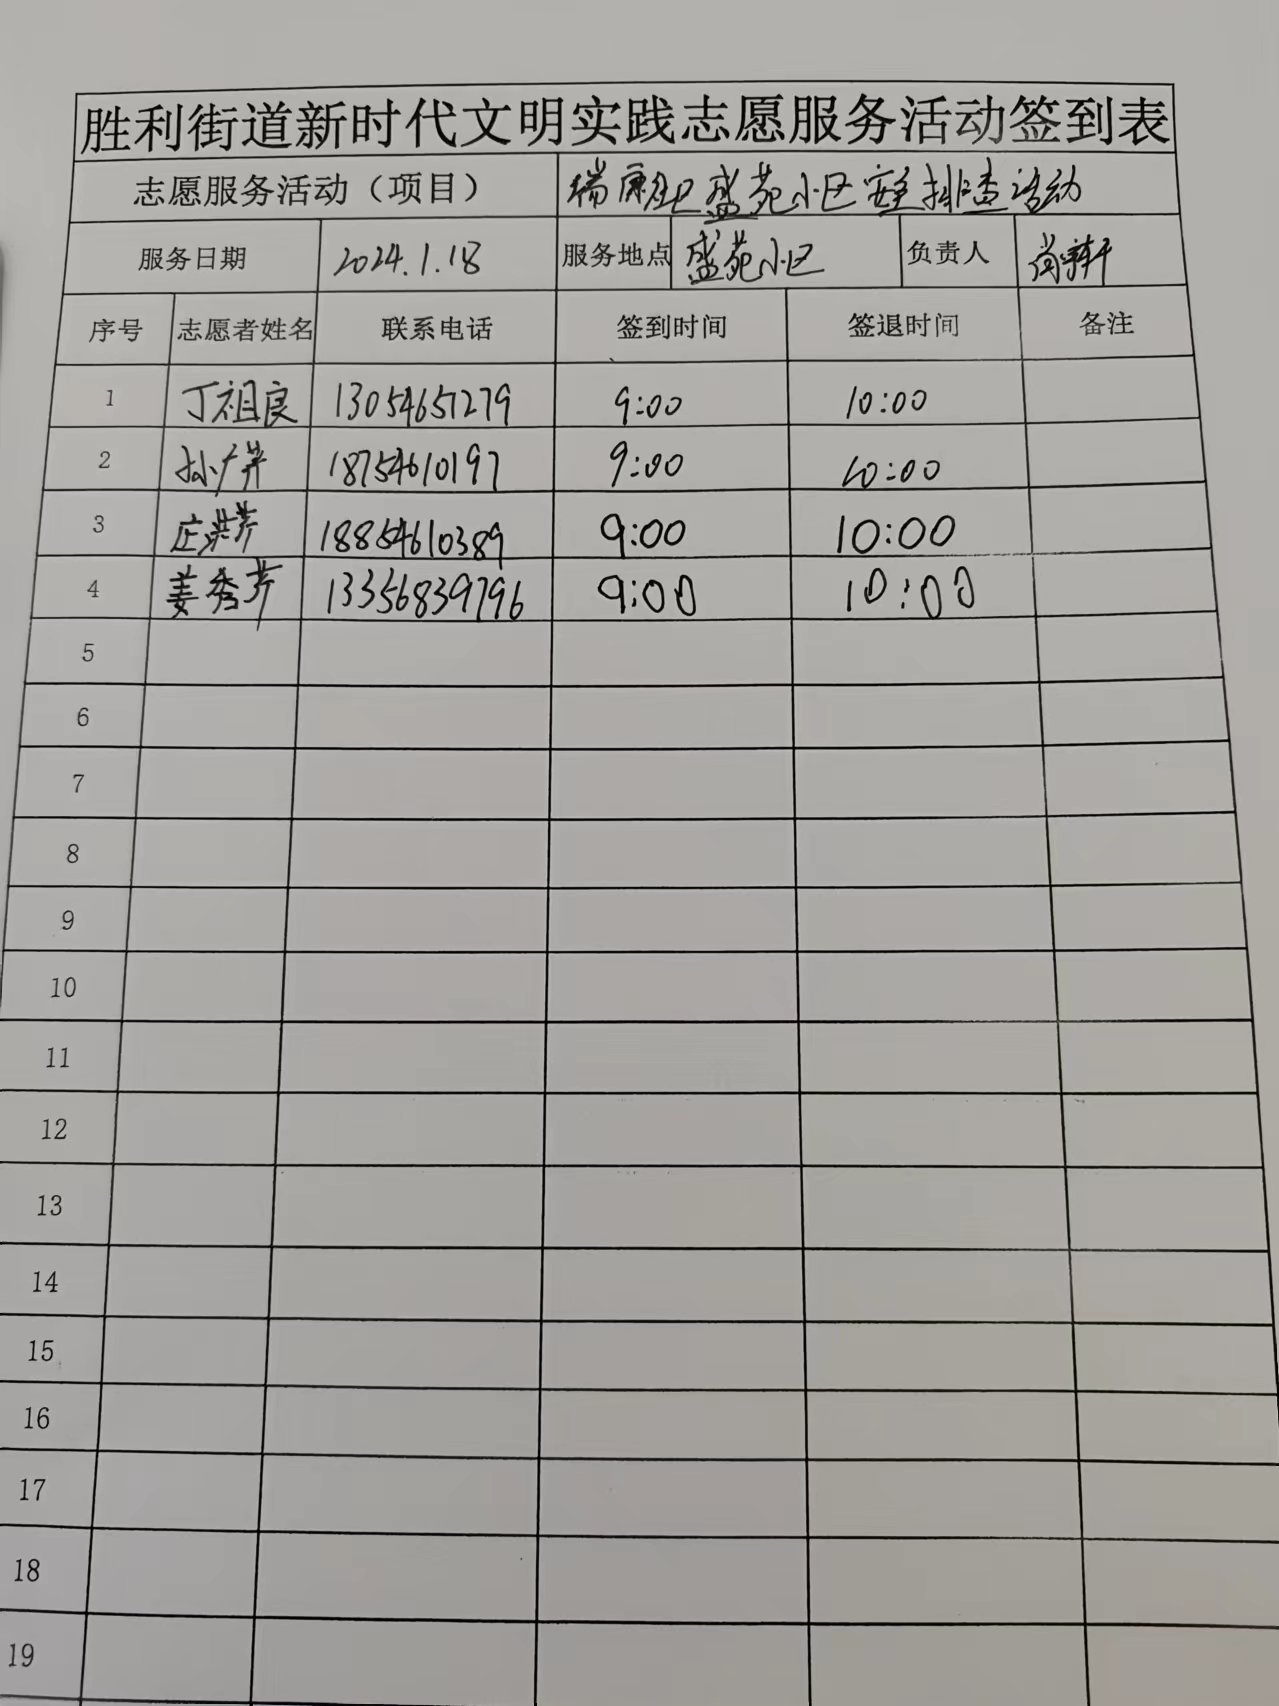 胜利街道新时代文明实践志愿服务活动签到表
志愿服务活动（项目） 瑞康社区盛苑小区安全排查活动
服务日期 2024.1.18 服务地点 盛苑小区 负责人 尚轩
序号 志愿者姓名 联系电话 签到时间 签退时间 备注
1 丁祖良 13054651279 9:00 10:00
2 孙广萍 18754610197 9:00 10:00
3 庄洪芹 18854610389 9:00 10:00
4 姜秀芹 13356839796 9:00 10:00
5
6
7
8
9
10
11
12
13
14
15
16
17
18
19